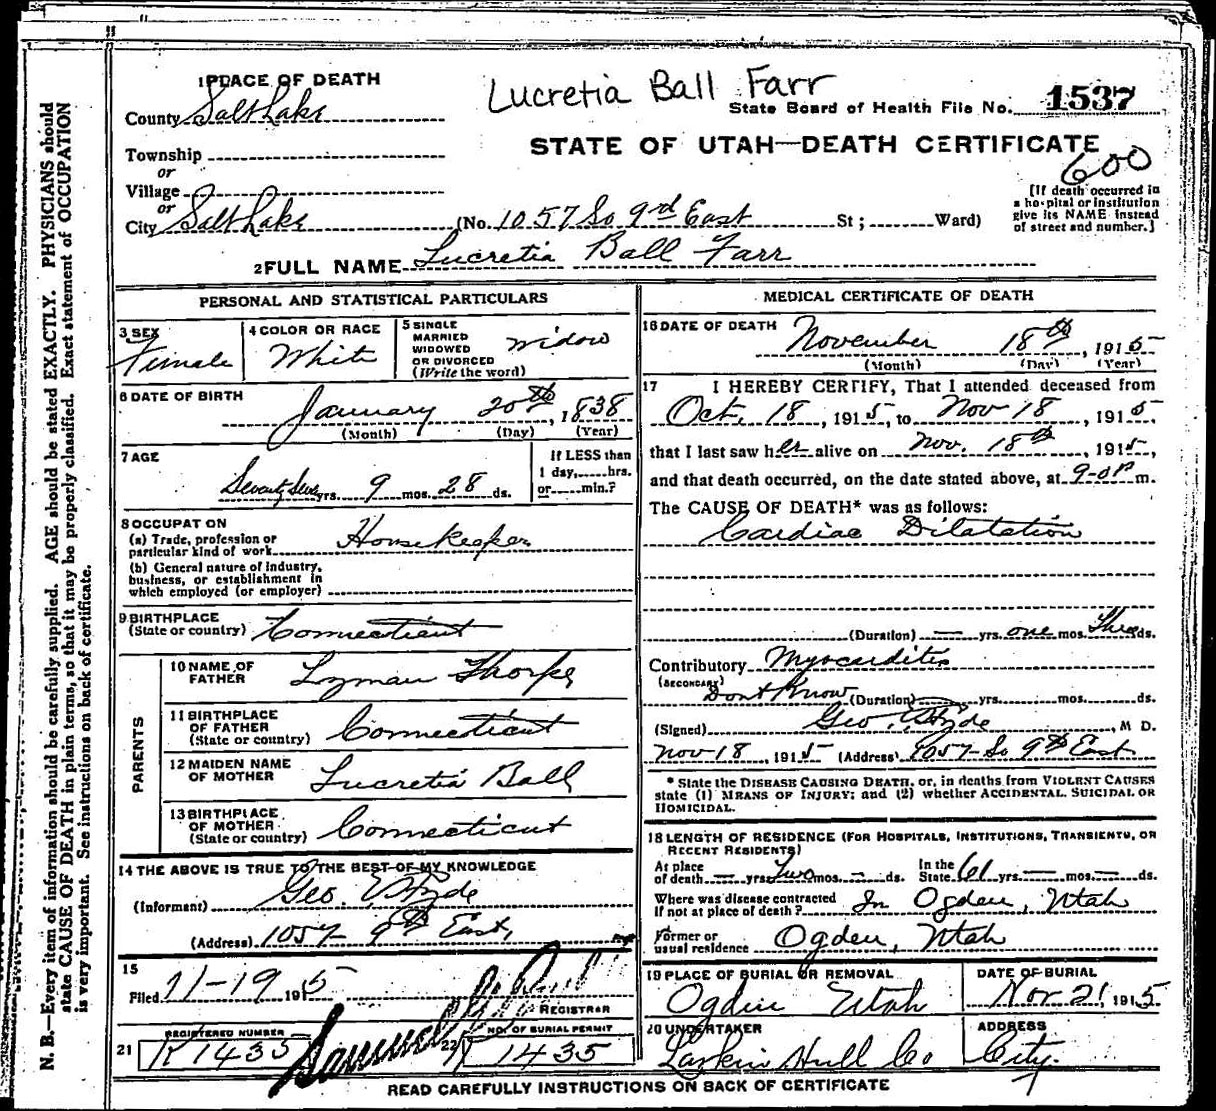 Lucretia Ball Farr
1 PLACE OF DEATH
County Salt Lake
State Board of Health File No. 1537
STATE OF UTAH—DEATH CERTIFICATE
600
Township
or
Village
or
City Salt Lake (No. 1057 So 9th East St; Ward)
[If death occurred in
a hospital or institution
give its NAME instead
of street and number.]
2 FULL NAME Lucretia Ball Farr
PERSONAL AND STATISTICAL PARTICULARS
3 SEX
Female
4 COLOR OR RACE
White
5 SINGLE
MARRIED
WIDOWED
OR DIVORCED
(Write the word)
Widow
6 DATE OF BIRTH
January 20th, 1838
(Month) (Day) (Year)
7 AGE
Seventy Seven yrs. 9 mos. 28 ds.
If LESS than
1 day, hrs.
or min.?
8 OCCUPATON
(a) Trade, profession or
particular kind of work Housekeeper
(b) General nature of industry,
business, or establishment in
which employed (or employer)
9 BIRTHPLACE
(State or country) Connecticut
PARENTS
10 NAME OF
FATHER Lyman Thorpe
11 BIRTHPLACE
OF FATHER
(State or country) Connecticut
12 MAIDEN NAME
OF MOTHER Lucretia Ball
13 BIRTHPLACE
OF MOTHER
(State or country) Connecticut
14 THE ABOVE IS TRUE TO THE BEST OF MY KNOWLEDGE
(Informant) Geo. Hyde
(Address) 1057 9th East,
15
Filed 11-19 1915
REGISTRAR
REGISTERED NUMBER
21 K1435
Samuel G. Paul
NO. OF BURIAL PERMIT
22 K 1435
MEDICAL CERTIFICATE OF DEATH
16 DATE OF DEATH
November 18th, 1915
(Month) (Day) (Year)
17 I HEREBY CERTIFY, That I attended deceased from
Oct. 18, 1915, to Nov 18, 1915.
that I last saw her alive on Nov. 18th, 1915,
and that death occurred, on the date stated above, at 9-0 P m.
The CAUSE OF DEATH* was as follows:
Cardiac Dilatation
(Duration) — yrs. one mos. Three ds.
Contributory Myocarditis
(SECONDARY)
Dont Know (Duration) yrs. mos. ds.
(Signed) Geo. Hyde, M D.
Nov 18, 1915 (Address) 1057 So 9th East
* State the DISEASE CAUSING DEATH, or, in deaths from VIOLENT CAUSES
state (1) MEANS OF INJURY; and (2) whether ACCIDENTAL, SUICIDAL OR
HOMICIDAL.
18 LENGTH OF RESIDENCE (FOR HOSPITALS, INSTITUTIONS, TRANSIENTS, OR
RECENT RESIDENTS)
At place
of death — yrs. Two mos. — ds.
In the
State 61 yrs. — mos. — ds.
Where was disease contracted
if not at place of death? In Ogden, Utah
Former or
usual residence Ogden, Utah
19 PLACE OF BURIAL OR REMOVAL
Ogden Utah
DATE OF BURIAL
Nov 21, 1915
20 UNDERTAKER
Larkin Hull Co
ADDRESS
City.
READ CAREFULLY INSTRUCTIONS ON BACK OF CERTIFICATE
N. B.—Every item of information should be carefully supplied. AGE should be stated EXACTLY. PHYSICIANS should
state CAUSE OF DEATH in plain terms, so that it may be properly classified. Exact statement of OCCUPATION
is very important. See instructions on back of certificate.